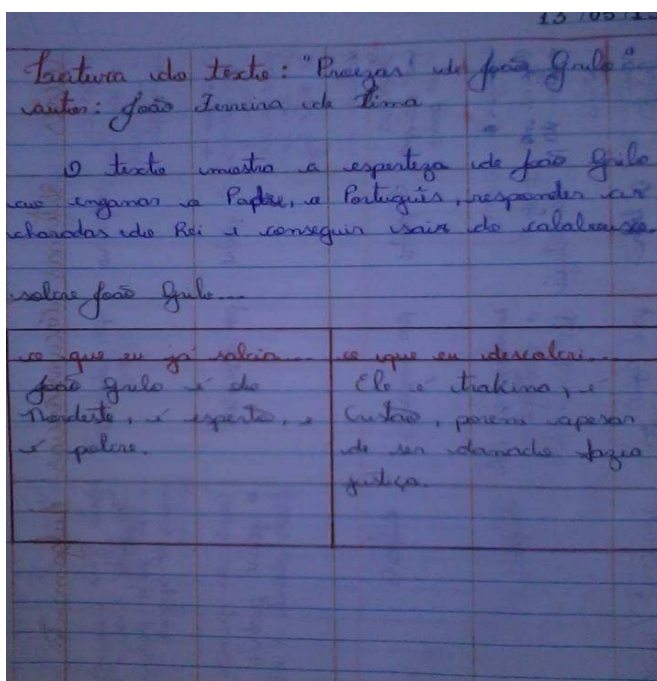 13 / 05 / 13
Leitura do texto: "Proezas de João Grilo"
autor: João Ferreira de Lima
O texto mostra a esperteza de João Grilo
ao enganar o Padre, o Português, responder as
charadas do Rei e conseguir sair do calabouço.
sobre João Grilo...
o que eu já sabia...
João Grilo é do
Nordeste, é esperto, e
é pobre.
o que eu descobri...
Ele é trakina, é
Cristão, porém apesar
de ser danado fazia
justiça.